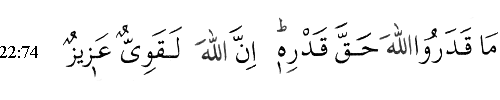 22:74 مَا قَدَرُوا اللّٰهَ حَقَّ قَدْرِهٖؕ اِنَّ اللّٰهَ لَـقَوِىٌّ عَزِيْزٌ